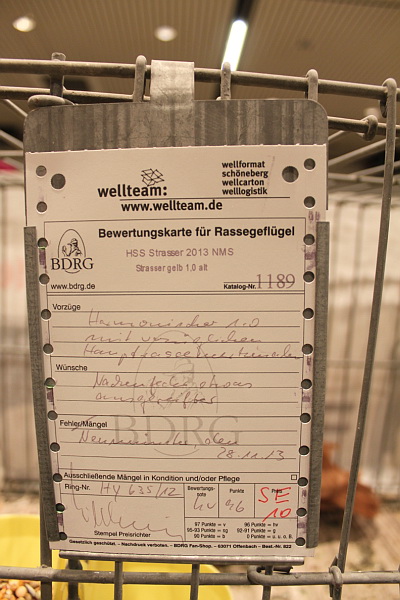 wellteam:
wellformat
schöneberg
wellcarton
welllogistik
www.wellteam.de
Bewertungskarte für Rassegeflügel
BDRG
HSS Strasser 2013 NMS
Strasser gelb 1,0 alt
www.bdrg.de
Katalog-Nr. 1189
Vorzüge
Harmonischer 1.0
mit
Wünsche
Fehler/Mängel
BDRG
Neumünster den
28.11.13
Ausschließende Mängel in Kondition und/oder Pflege
Ring-Nr. HV 635/12
Bewertungs-
note
hv
Punkte
96
Preis
SE
10
Stempel Preisrichter
97 Punkte = v
96 Punkte = hv
95-93 Punkte = sg
92-91 Punkte = g
90 Punkte = b
0 Punkte = u. o. B.
Gesetzlich geschützt. - Nachdruck verboten. – BDRG Fan-Shop. – 63071 Offenbach – Best.-Nr. 822